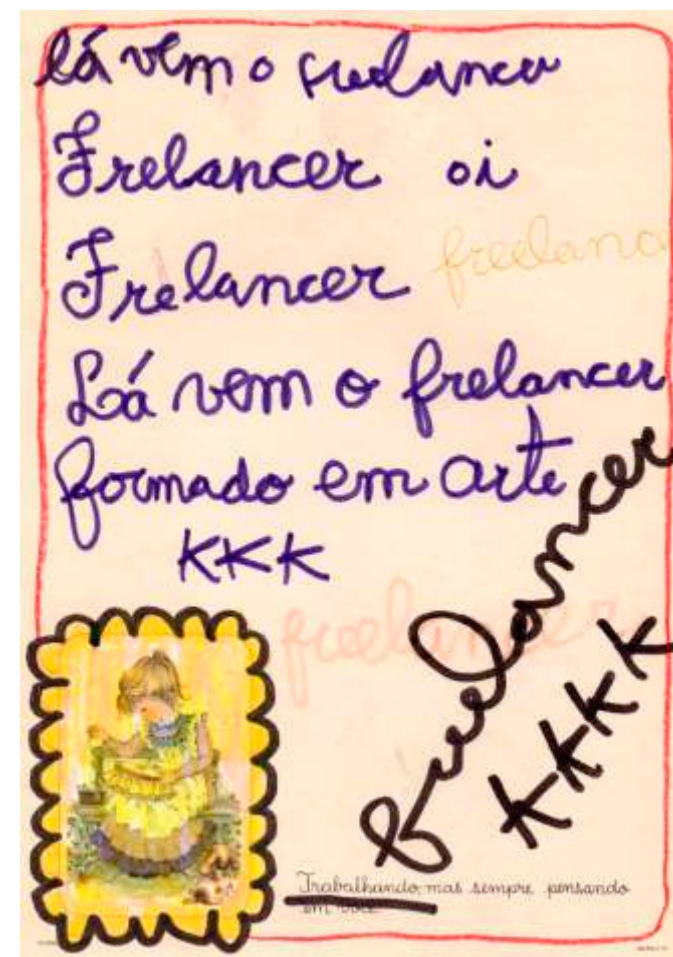 lá vem o freelancer
Frelancer oi
Frelancer freelanc
Lá vem o frelancer
formado em arte
KKK
freelancer
freelancer
KKKK
Trabalhando, mas sempre pensando
em você